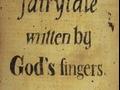 fairytale
written by
God's fingers.